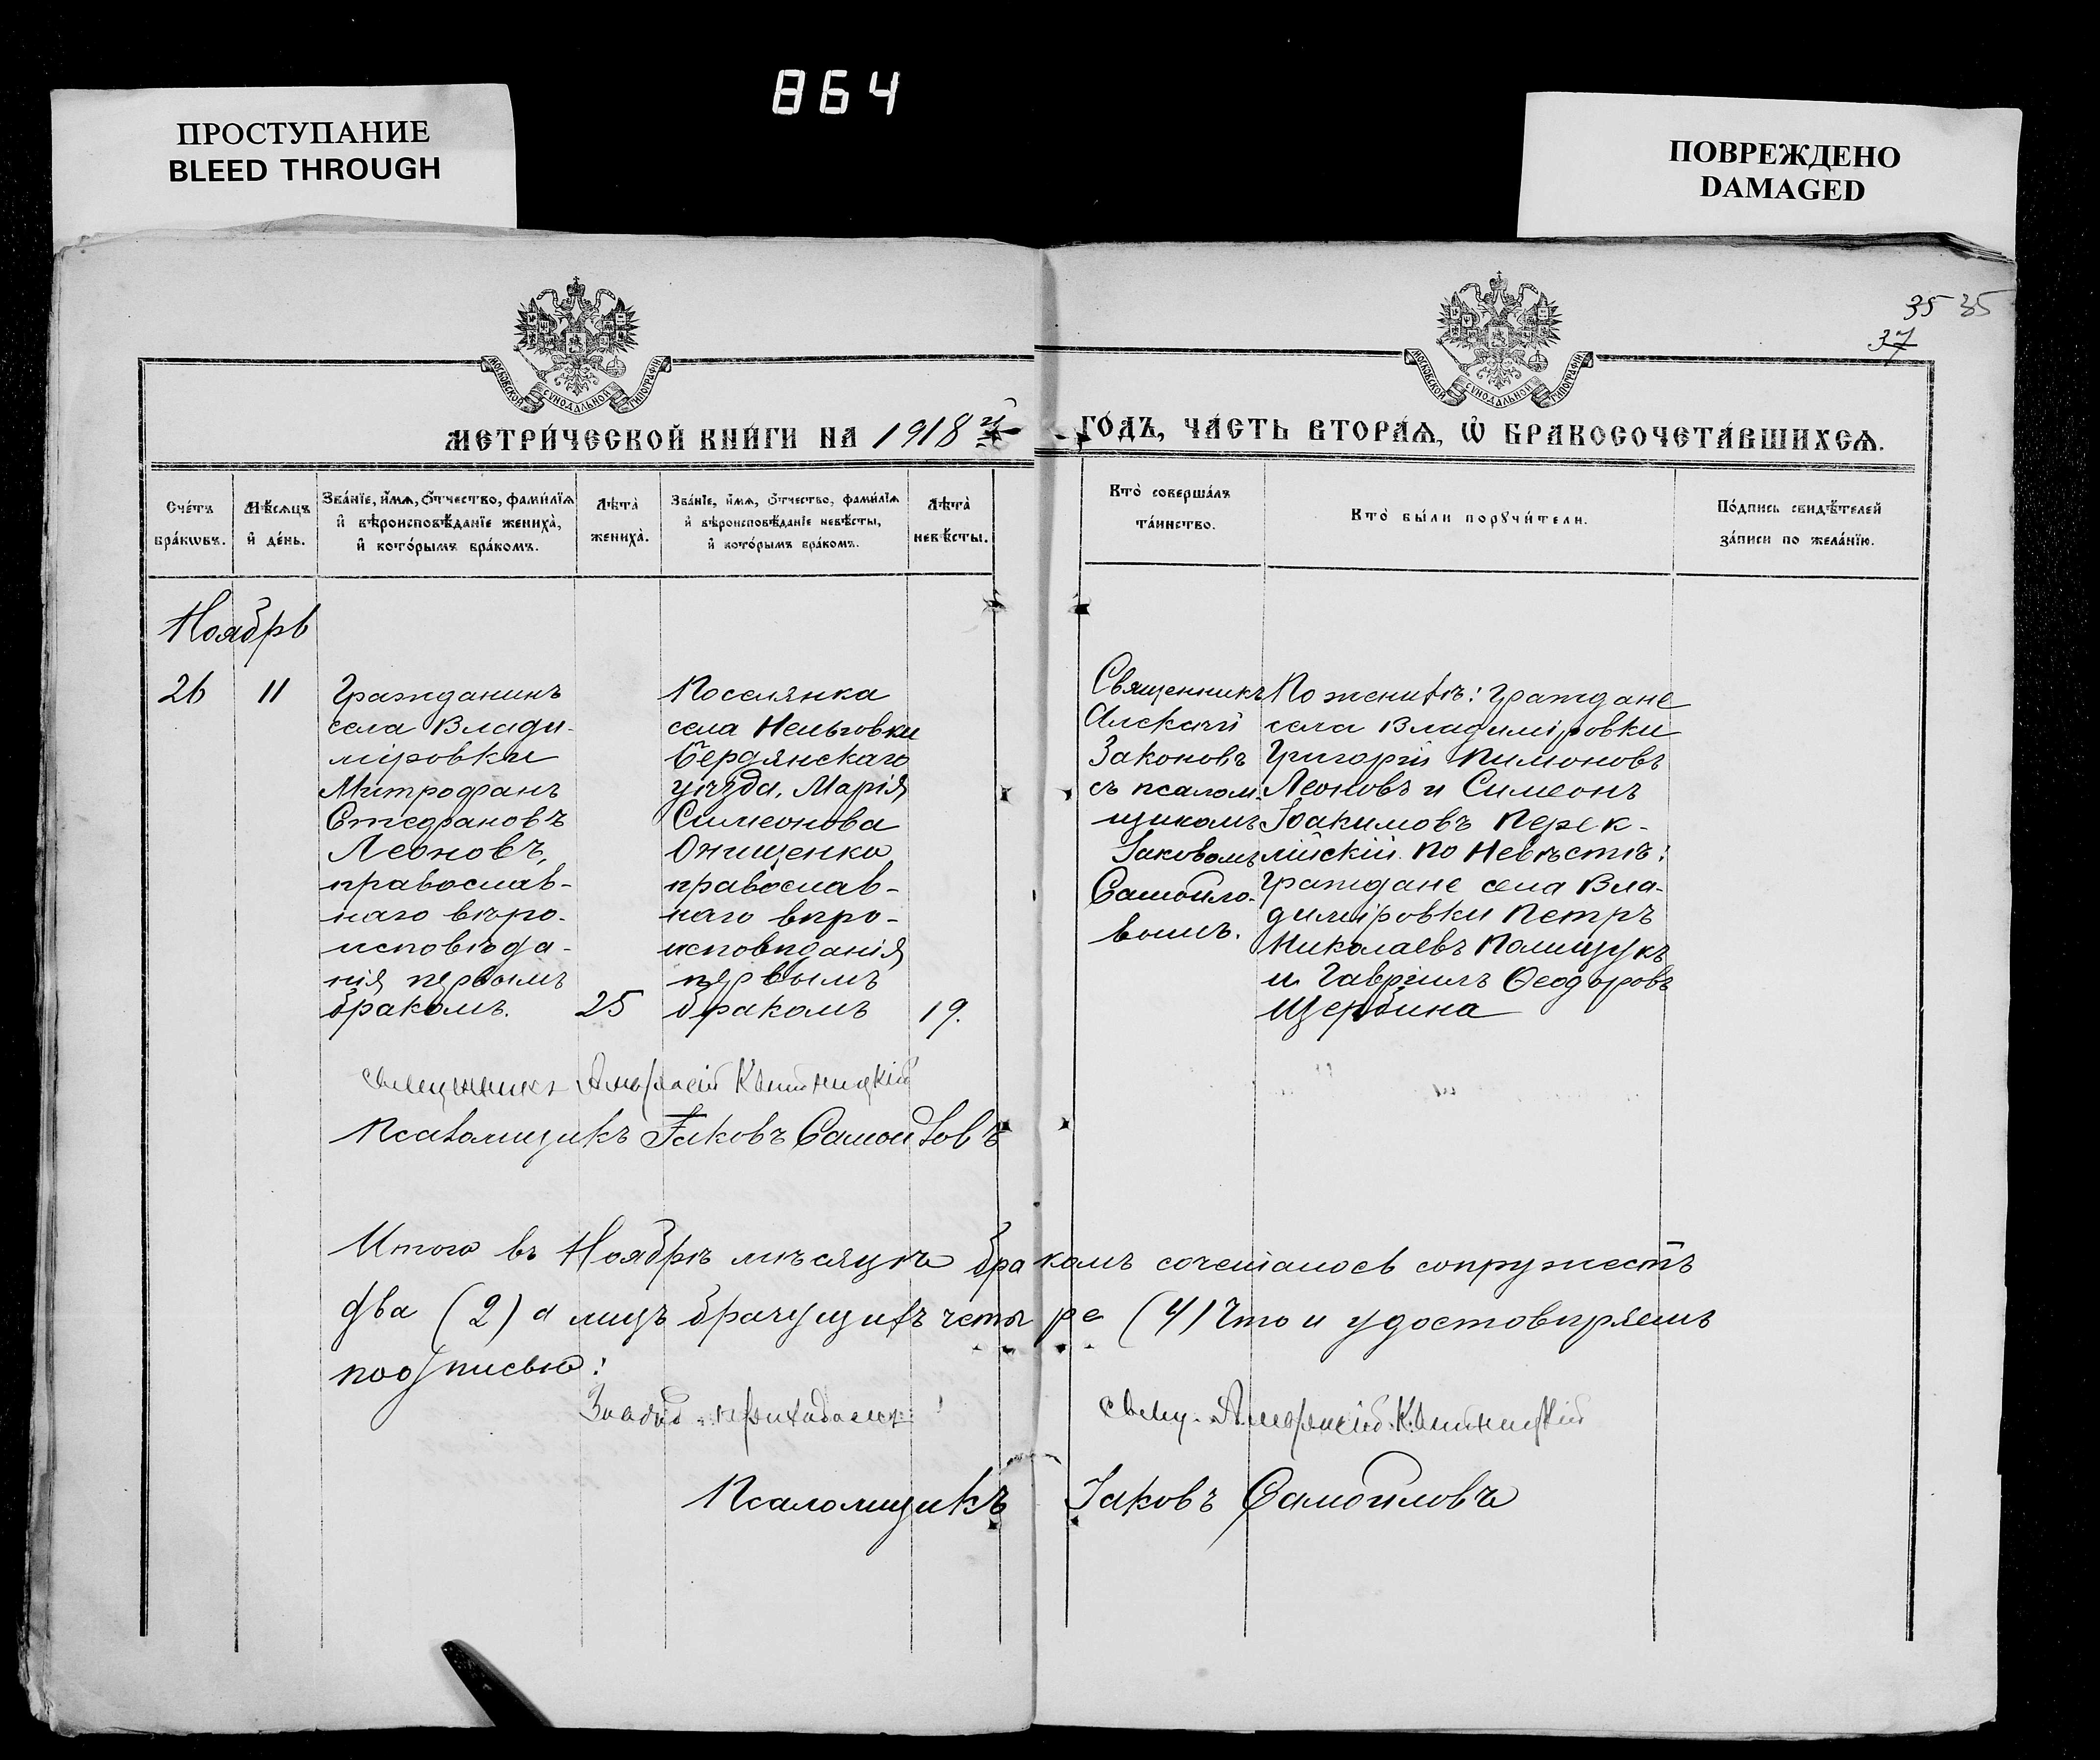 864
ПРОСТУПАНИЕ
BLEED THROUGH
ПОВРЕЖДЕНО
DAMAGED
35 35
37
МОСКОВСКОЙ СѴНОДАЛЬНОЙ ТИПОГРАФІИ
МОСКОВСКОЙ СѴНОДАЛЬНОЙ ТИПОГРАФІИ
МЕТРИ́ЧЕСКОЙ КНИ́ГИ НА 1918 й
ГО́ДЪ, ЧА́СТЬ ВТОРА́Ѧ, Ѡ҆ БРАКОСОЧЕТА́ВШИХСѦ.
Сче́тъ
бра́кѡвъ.
Мѣ́сѧцъ
и҆ де́нь.
Зва́нїе, и҆́мѧ, ѻ҆́тчество, фами́лїѧ
и҆ вѣроисповѣ́данїе жениха̀,
и҆ кото́рымъ бра́комъ.
Лѣ́та
жениха̀.
Зва́нїе, и҆́мѧ, ѻ҆́тчество, фами́лїѧ
и҆ вѣроисповѣ́данїе невѣ́сты,
и҆ кото́рымъ бра́комъ.
Лѣ́та
невѣ́сты.
Кто̀ соверша́лъ
та́инство.
Кто̀ бы́ли порꙋчи́тели.
По́дпись свидѣ́телей
за́писи по жела́нїю.
Ноябрь
26
11
Гражданинъ
села Влади-
міровки
Митрофанъ
Стефановъ
Леоновъ,
православ-
наго вѣро-
исповѣда-
нія первымъ
бракомъ.
25
Поселянка
села Нельговки
Бердянскаго
уѣзда, Марія
Симеонова
Онищенко
православ-
наго вѣро-
исповѣданія
первымъ
бракомъ
19.
Священникъ
Алексѣй
Законовъ
съ псалом-
щикомъ
Іаковомъ
Самойло-
вымъ.
По женихѣ: граждане
села Владиміровки
Григорій Пимоновъ
Леоновъ и Симеонъ
Іоакимовъ Перек-
лійскій. По невѣстѣ:
Граждане села Вла-
диміровки Петръ
Николаевъ Полищукъ
и Гавріилъ Ѳеодоровъ
Щербина
священникъ
Псаломщикъ Іаковъ Самойловъ
Итого въ Ноябрѣ мѣсяцѣ бракомъ сочеталось супружествъ
два (2) а лицъ брачущихъ четыре (4) Что и удостовѣряемъ
подписью:
свящ.
Псаломщикъ Іаковъ Самойловъ